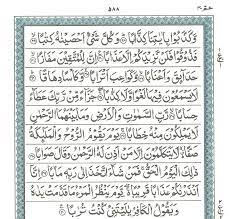 عم ٣٠
٥٨٨
وَّكَذَّبُوْا بِاٰيٰتِنَا كِذَّابًا ۞ وَكُلَّ شَيْءٍ اَحْصَيْنٰهُ كِتٰبًا ۞
فَذُوْقُوْا فَلَنْ نَّزِيْدَكُمْ اِلَّا عَذَابًا ۞ اِنَّ لِلْمُتَّقِيْنَ مَفَازًا ۞
حَدَآئِقَ وَاَعْنَابًا ۞ وَّكَوَاعِبَ اَتْرَابًا ۞ وَّكَاْسًا دِهَاقًا ۞
لَا يَسْمَعُوْنَ فِيْهَا لَغْوًا وَّلَا كِذّٰبًا ۞ جَزَآءً مِّنْ رَّبِّكَ عَطَآءً
حِسَابًا ۞ رَّبِّ السَّمٰوٰتِ وَالْاَرْضِ وَمَا بَيْنَهُمَا الرَّحْمٰنِ
لَا يَمْلِكُوْنَ مِنْهُ خِطَابًا ۞ يَوْمَ يَقُوْمُ الرُّوْحُ وَالْمَلٰٓئِكَةُ
صَفًّا لَّا يَتَكَلَّمُوْنَ اِلَّا مَنْ اَذِنَ لَهُ الرَّحْمٰنُ وَقَالَ صَوَابًا ۞
ذٰلِكَ الْيَوْمُ الْحَقُّ فَمَنْ شَآءَ اتَّخَذَ اِلٰى رَبِّهٖ مَاٰبًا ۞ اِنَّآ
اَنْذَرْنٰكُمْ عَذَابًا قَرِيْبًا يَّوْمَ يَنْظُرُ الْمَرْءُ مَا قَدَّمَتْ يَدٰهُ
وَيَقُوْلُ الْكٰفِرُ يٰلَيْتَنِيْ كُنْتُ تُرٰبًا ۞